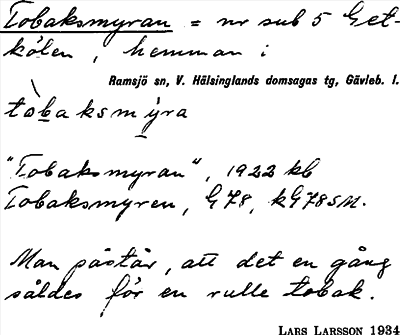 Tobaksmyran = nr sub 5 Get-
kölen, hemman i
Ramsjö sn, V. Hälsinglands domsagas tg, Gävleb. l.
tòbaksmyra
"Tobaksmyran", 1922 kb
Tobaksmyren, G78, kG78SM.
Man påstår, att det en gång
såldes för en rulle tobak.
LARS LARSSON 1934